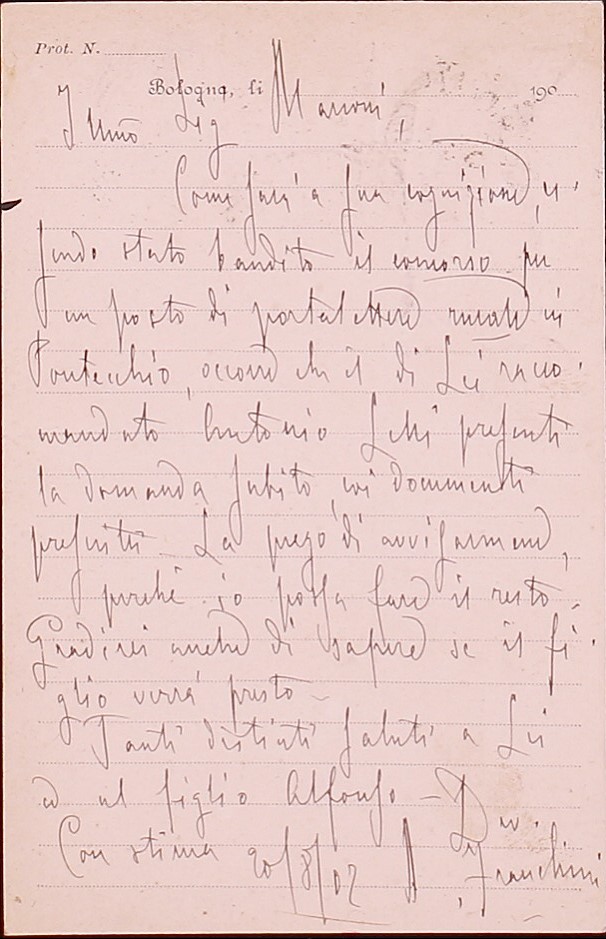 Prot. N.
Bologna, li 190
Illmo Sig Marconi,
Come sarà a sua cognizione, es-
sendo stato bandito il concorso per
un posto di portalettere rurale in
Pontecchio, occorre che il di Lei racco-
mandato Antonio presenti
la domanda subito, coi documenti
prescritti. La prego di avvisarmene,
perché io possa fare il resto.
Gradirei anche di sapere se il fi-
glio verrà presto
Tanti distinti saluti a Lei
ed al figlio Alfonso - Dev.
Con stima 20/8/02 Franchini